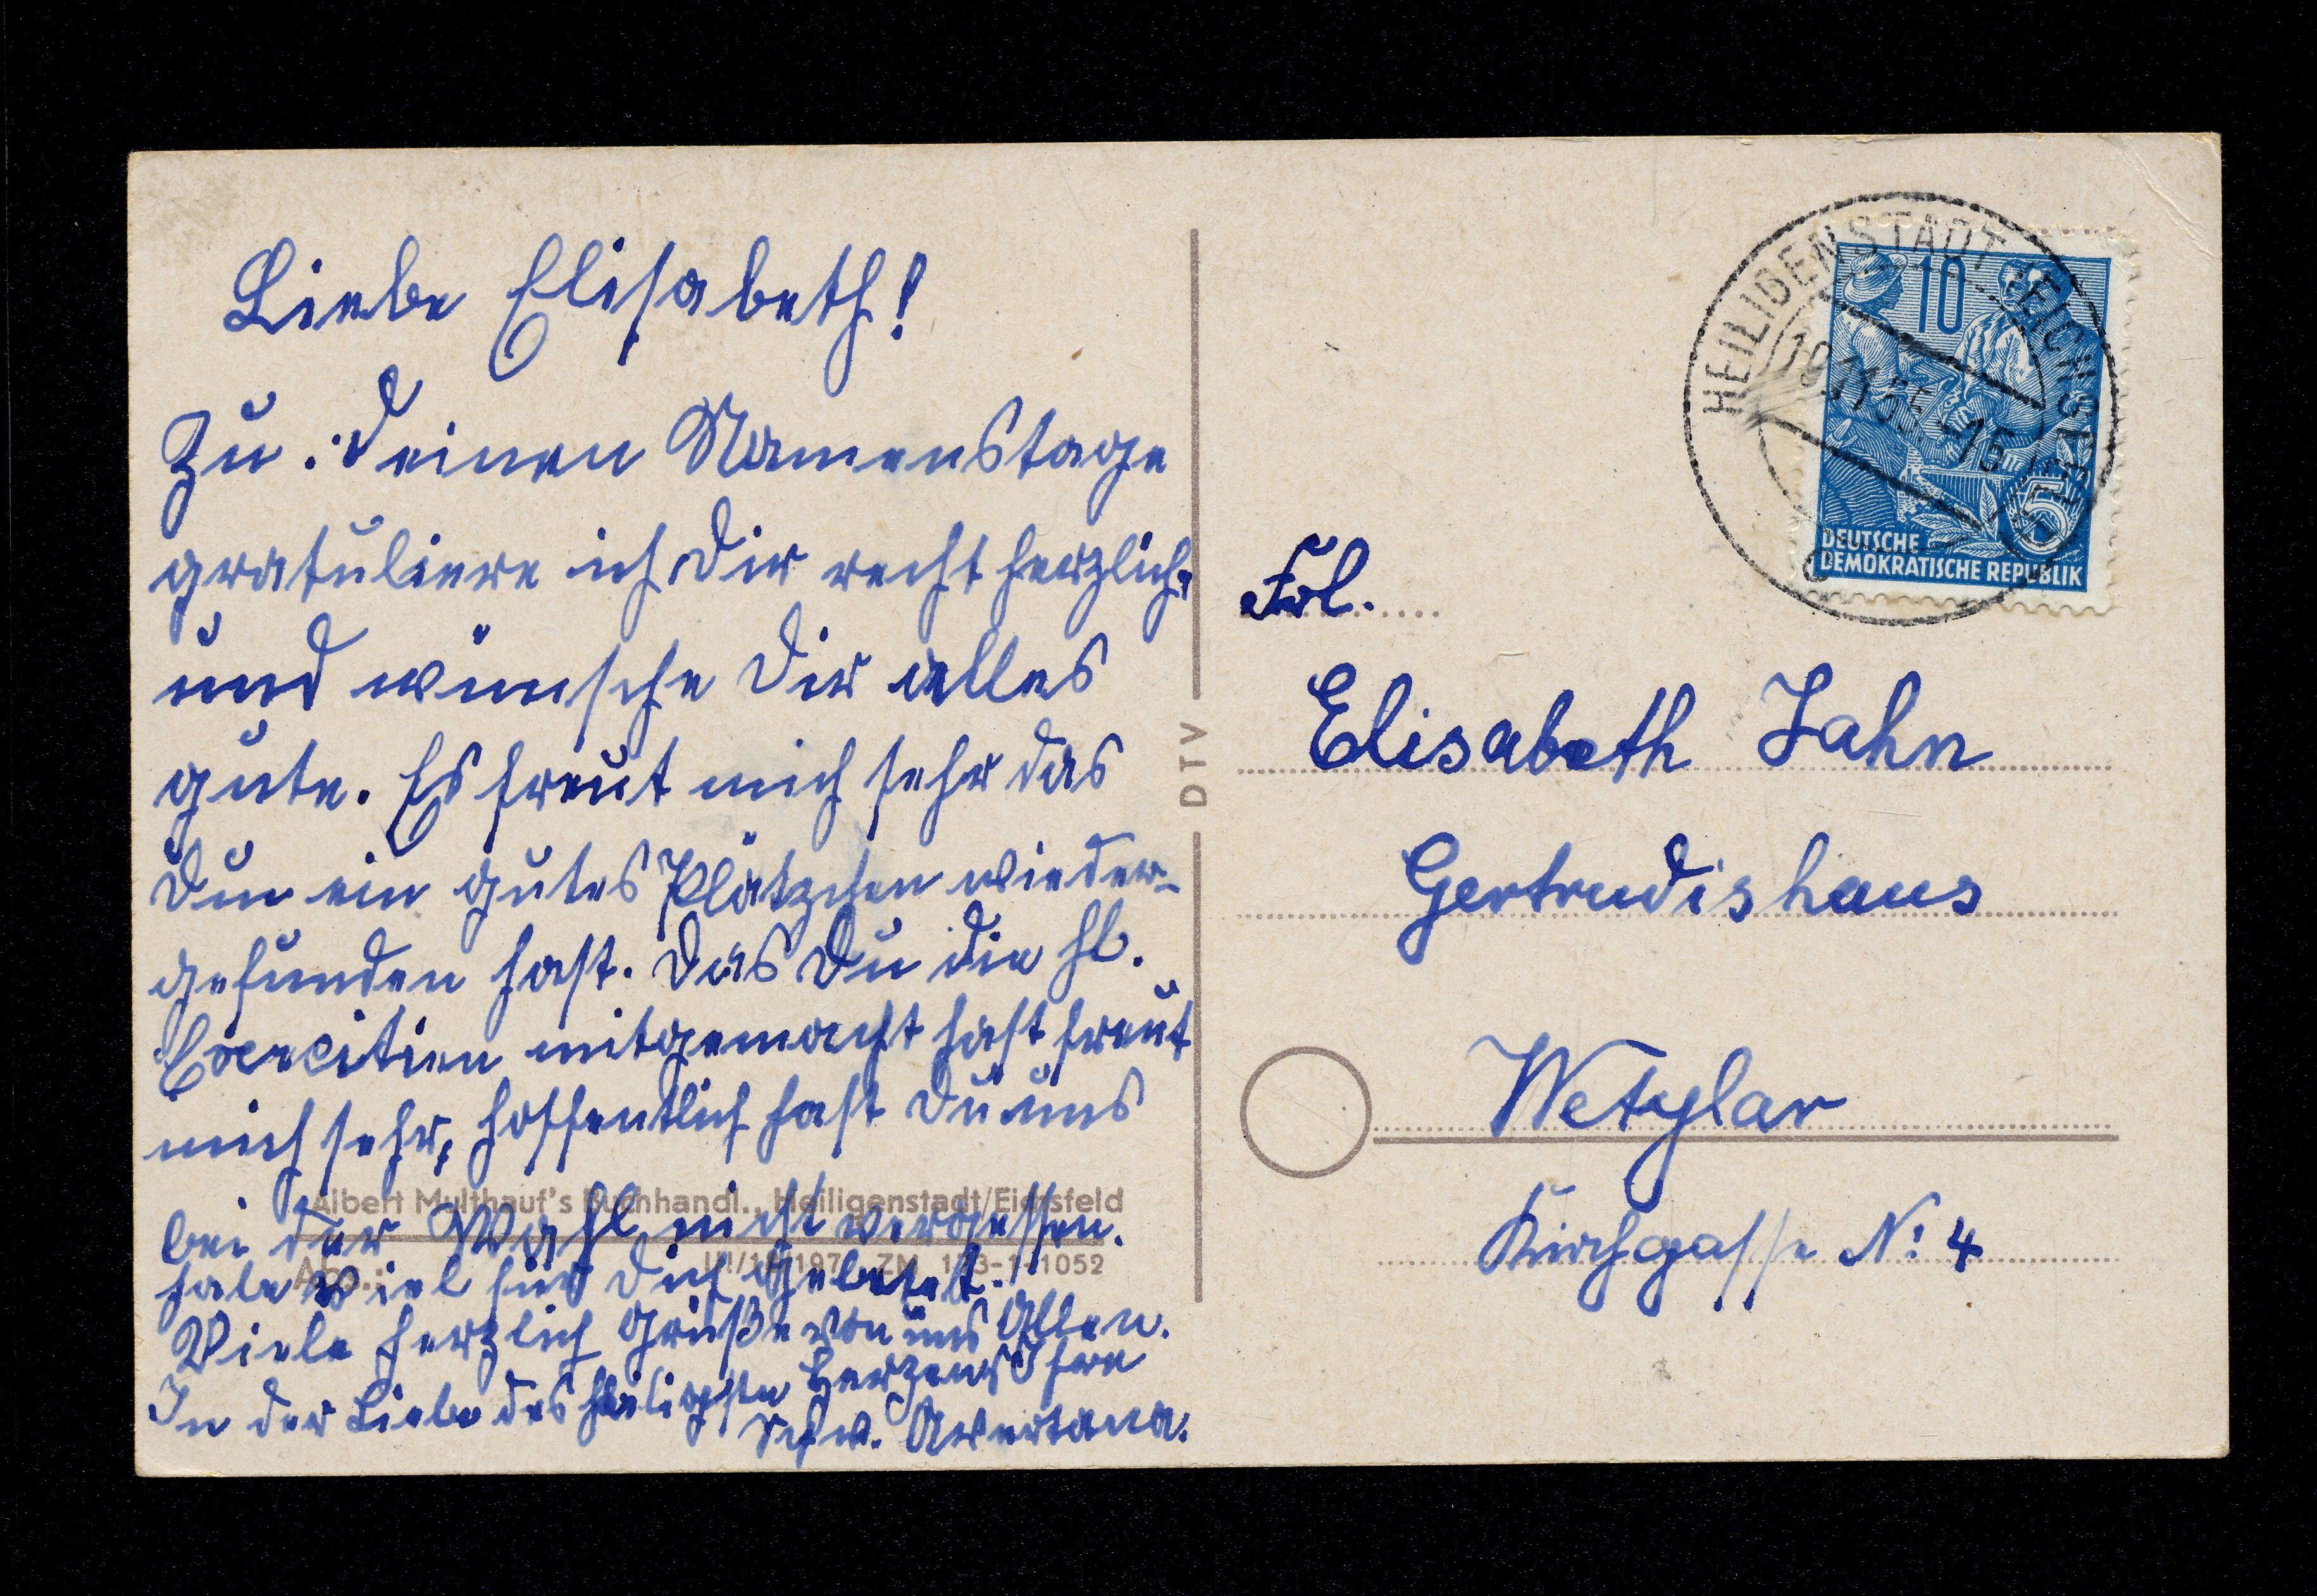 Liebe Elisabeth!
Zu Deinen Namenstage
gratuliere ich Dir recht herzlich,
und wünsche Dir alles
gute. Es freut mich sehr das
Du ein gutes Plätzchen wieder-
gefunden hast. Das Du die hl.
Exercitien mitgemacht hast freut
mich sehr, hoffentlich hast Du uns
bei der Wahl nicht vergessen.
habe viel für Dich gebetet.
Viele herzlich Grüße von uns Allen.
In der Liebe des heiligste Herzens
Schw. Avertana.
Albert Multhauf's Buchhandl., Heiligenstadt/Eichsfeld
DTV
HEILIGENSTADT (EICHSFELD)
19.11.55.-16
10
5
DEUTSCHE
DEMOKRATISCHE REPUBLIK
Frl.
Elisabeth Jahn
Gertrudishaus
Wetzlar
Kirchgasse N: 4